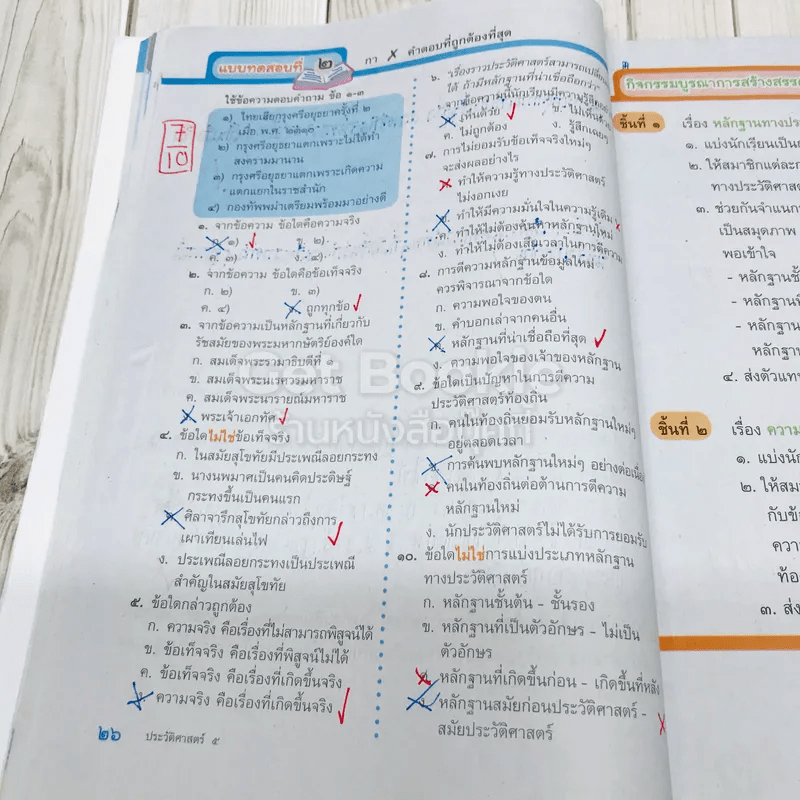 แบบทดสอบที่ ๒
กา X คำตอบที่ถูกต้องที่สุด
7
10
ใช้ข้อความตอบคำถาม ข้อ ๑-๓
๑) ไทยเสียกรุงศรีอยุธยาครั้งที่ ๒
เมื่อ พ.ศ. ๒๓๑๐
๒) กรุงศรีอยุธยาแตกเพราะไม่ได้ทำ
สงครามมานาน
๓) กรุงศรีอยุธยาแตกเพราะเกิดความ
แตกแยกในราชสำนัก
๔) กองทัพพม่าเตรียมพร้อมมาอย่างดี
๑. จากข้อความ ข้อใดคือความจริง
ก. ๑) ข. ๒)
ค. ๓) ง. ๔)
๒. จากข้อความ ข้อใดคือข้อเท็จจริง
ก. ๒) ข. ๓)
ค. ๔) ง. ถูกทุกข้อ
๓. จากข้อความเป็นหลักฐานที่เกี่ยวกับ
รัชสมัยของพระมหากษัตริย์องค์ใด
ก. สมเด็จพระรามาธิบดีที่ ๑
ข. สมเด็จพระนเรศวรมหาราช
ค. สมเด็จพระนารายณ์มหาราช
ง. พระเจ้าเอกทัศ
๔. ข้อใดไม่ใช่ข้อเท็จจริง
ก. ในสมัยสุโขทัยมีประเพณีลอยกระทง
ข. นางนพมาศเป็นคนคิดประดิษฐ์
กระทงขึ้นเป็นคนแรก
ค. ศิลาจารึกสุโขทัยกล่าวถึงการ
เผาเทียนเล่นไฟ
ง. ประเพณีลอยกระทงเป็นประเพณี
สำคัญในสมัยสุโขทัย
๕. ข้อใดกล่าวถูกต้อง
ก. ความจริง คือเรื่องที่ไม่สามารถพิสูจน์ได้
ข. ข้อเท็จจริง คือเรื่องที่พิสูจน์ไม่ได้
ค. ข้อเท็จจริง คือเรื่องที่เกิดขึ้นจริง
ง. ความจริง คือเรื่องที่เกิดขึ้นจริง
๒๖ ประวัติศาสตร์ ๕
๖. "เรื่องราวประวัติศาสตร์สามารถเปลี่ยน
ได้ ถ้ามีหลักฐานที่น่าเชื่อถือกว่า"
จากข้อความนี้นักเรียนมีความรู้สึก
ก. เห็นด้วย ข. ไม่เห็นด้วย
ค. ไม่ถูกต้อง ง. รู้สึกเฉยๆ
๗. การไม่ยอมรับข้อเท็จจริงใหม่ๆ
จะส่งผลอย่างไร
ก. ทำให้ความรู้ทางประวัติศาสตร์
ไม่งอกเงย
ข. ทำให้มีความมั่นใจในความรู้เดิม
ค. ทำให้ไม่ต้องค้นคว้าหลักฐานใหม่
ง. ทำให้ไม่ต้องเสียเวลาในการตีความ
๘. การตีความหลักฐานข้อมูลใหม่
ควรพิจารณาจากข้อใด
ก. ความพอใจของตน
ข. คำบอกเล่าจากคนอื่น
ค. หลักฐานที่น่าเชื่อถือที่สุด
ง. ความพอใจของเจ้าของหลักฐาน
๙. ข้อใดเป็นปัญหาในการตีความ
ประวัติศาสตร์ท้องถิ่น
ก. คนในท้องถิ่นยอมรับหลักฐานใหม่ๆ
อยู่ตลอดเวลา
ข. การค้นพบหลักฐานใหม่ๆ อย่างต่อเนื่อง
ค. คนในท้องถิ่นต่อต้านการตีความ
หลักฐานใหม่
ง. นักประวัติศาสตร์ไม่ได้รับการยอมรับ
๑๐. ข้อใดไม่ใช่การแบ่งประเภทหลักฐาน
ทางประวัติศาสตร์
ก. หลักฐานชั้นต้น - ชั้นรอง
ข. หลักฐานที่เป็นตัวอักษร - ไม่เป็น
ตัวอักษร
ค. หลักฐานที่เกิดขึ้นก่อน - เกิดขึ้นทีหลัง
ง. หลักฐานสมัยก่อนประวัติศาสตร์ -
สมัยประวัติศาสตร์
Get Bookie
ร้านหนังสือ
กิจกรรมบูรณาการสร้างสรร
ชิ้นที่ ๑ เรื่อง หลักฐานทางประ
๑. แบ่งนักเรียนเป็น
๒. ให้สมาชิกแต่ละก
ทางประวัติศาส
๓. ช่วยกันจำแนก
เป็นสมุดภาพ
พอเข้าใจ
- หลักฐานชั้
- หลักฐานที่
- หลักฐาน
หลักฐา
๔. ส่งตัวแท
ชิ้นที่ ๒ เรื่อง ความ
๑. แบ่งนัก
๒. ให้สม
กับข้
ควา
ท้อ
๓. ส่ง